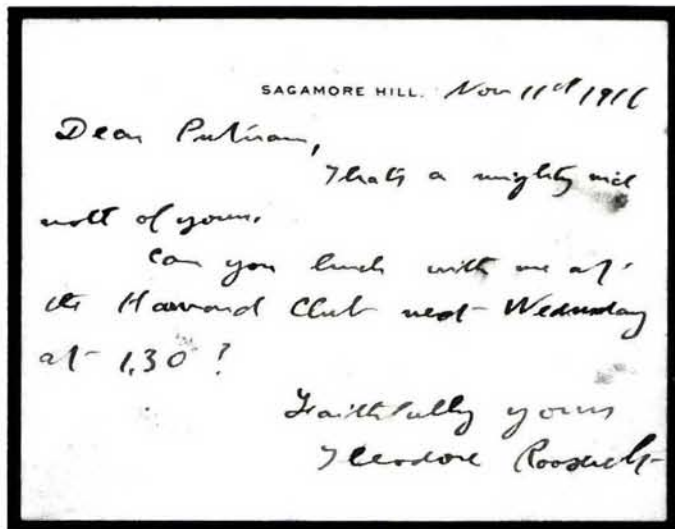 SAGAMORE HILL. Nov 11th 1916
Dear Putnam,
That's a mighty nice
note of yours.
Can you lunch with me at
the Harvard Club next Wednesday
at 1.30?
Faithfully yours
Theodore Roosevelt